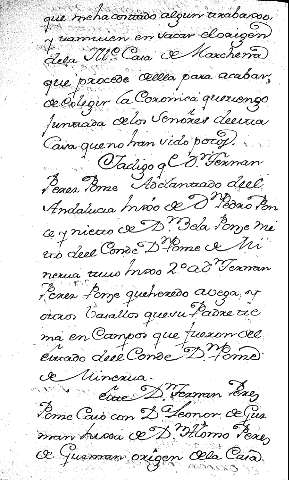 que me ha contado algun trabajo
y tambien en sacar el origen
dela Ill.e Casa de Marchena
que procede della para acabar,
de Colegir la Coronica que tengo
juntada de los Señores de esta
Casa que no han sido pocos.
Ya digo q.e D.n Fernan
Perez Ponze Adelantado de el
Andalucia hijo de D.n Pedro Pon
ce y nieto de D.n Vela Ponze Vi
nieto de el Conde D.n Ponze de Mi
nerva tuvo hijo 2.o a d.n Fernan
Perez Ponze que heredo a vega, y
otros Vasallos que su Padre te
nia en Campos que fueron del
estado de el Conde D.n Ponze
de Minerva.
Este D.n Fernan Perez
Ponze Casò con D.a Leonor de Gus
man hija de D.n Alonso Perez
de Gusman origen dela Casa